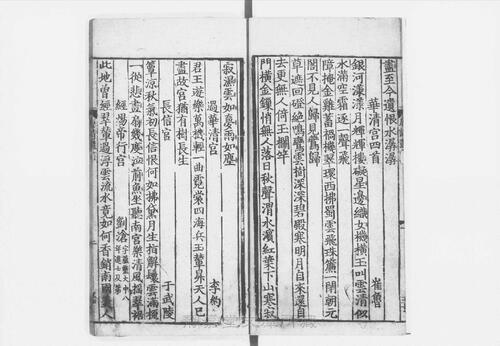 盡至今遺恨水潺潺
華清宮四首
崔魯
銀河漾漾月輝輝樓礙星邊織女機橫玉叫雲清似
水滿空霜逐一聲飛
障掩金雞蓄禍機翠環西拂蜀雲飛珠簾一閉朝元
閣不見人歸見鷰歸
草遮回磴絶鳴鑾雲樹深深碧殿寒明月自來還自
去更無人倚玉欄干
門橫金鏁悄無人落日秋聲渭水濱紅葉下山寒寂
寂濕雲如夢雨如塵
過華清宮
李約
君王遊樂萬機輕一曲霓裳四海兵玉輦昇天人已
盡故宮猶有樹長生
長信宮
于武陵
簟涼秋氣初長信恨何如拂黛月生指鬟雲滿梳
一從悲畫扇幾度泣前魚坐聽南宮樂清風搖翠裾
經煬帝行宮
劉滄
此地曾經翠輦過浮雲流水竟如何香銷南國美人